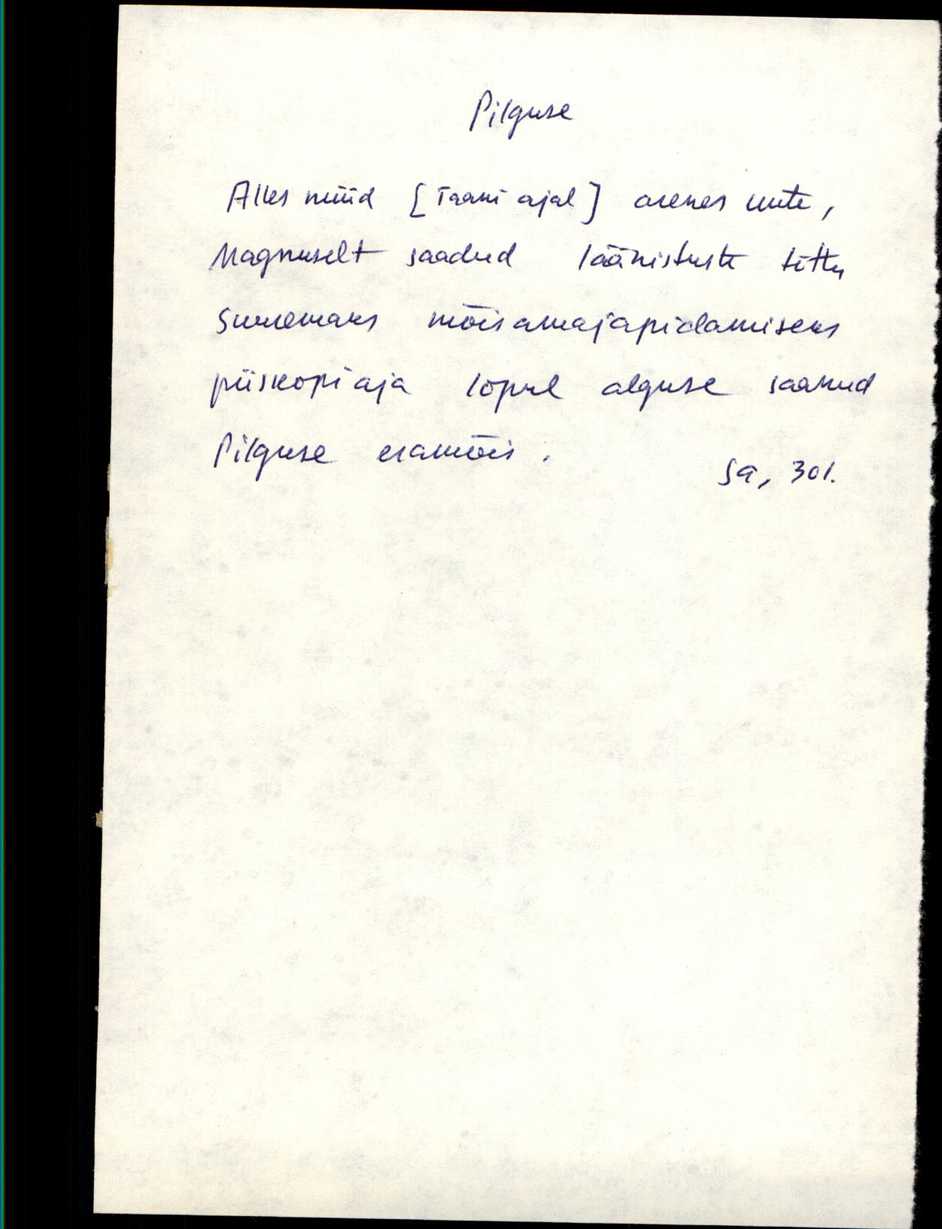 Pilguse
Alles nüüd [Taani ajal] arenes uute,
Magnuselt saadud läänistuste tõttu
suuremaks mõisamajapidamiseks
piiskopiaja lõpul alguse saanud
Pilguse eramõis.
Sa, 301.